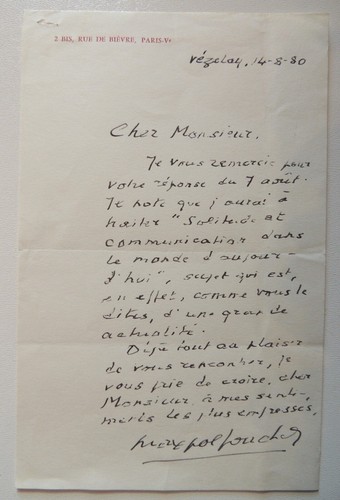 2 BIS, RUE DE BIÈVRE, PARIS-Ve
Vézelay, 14-8-80
Cher Monsieur,
Je vous remercie pour
votre réponse du 7 août.
Je note que j'aurai à
traiter "Solitude et
communication dans
le monde d'aujour-
d'hui", sujet qui est,
en effet, comme vous le
dites, d'une grande
actualité.
Déjà tout au plaisir
de vous rencontrer, je
vous prie de croire, cher
Monsieur, à mes senti-
ments les plus empressés.
Max-Pol Fouchet